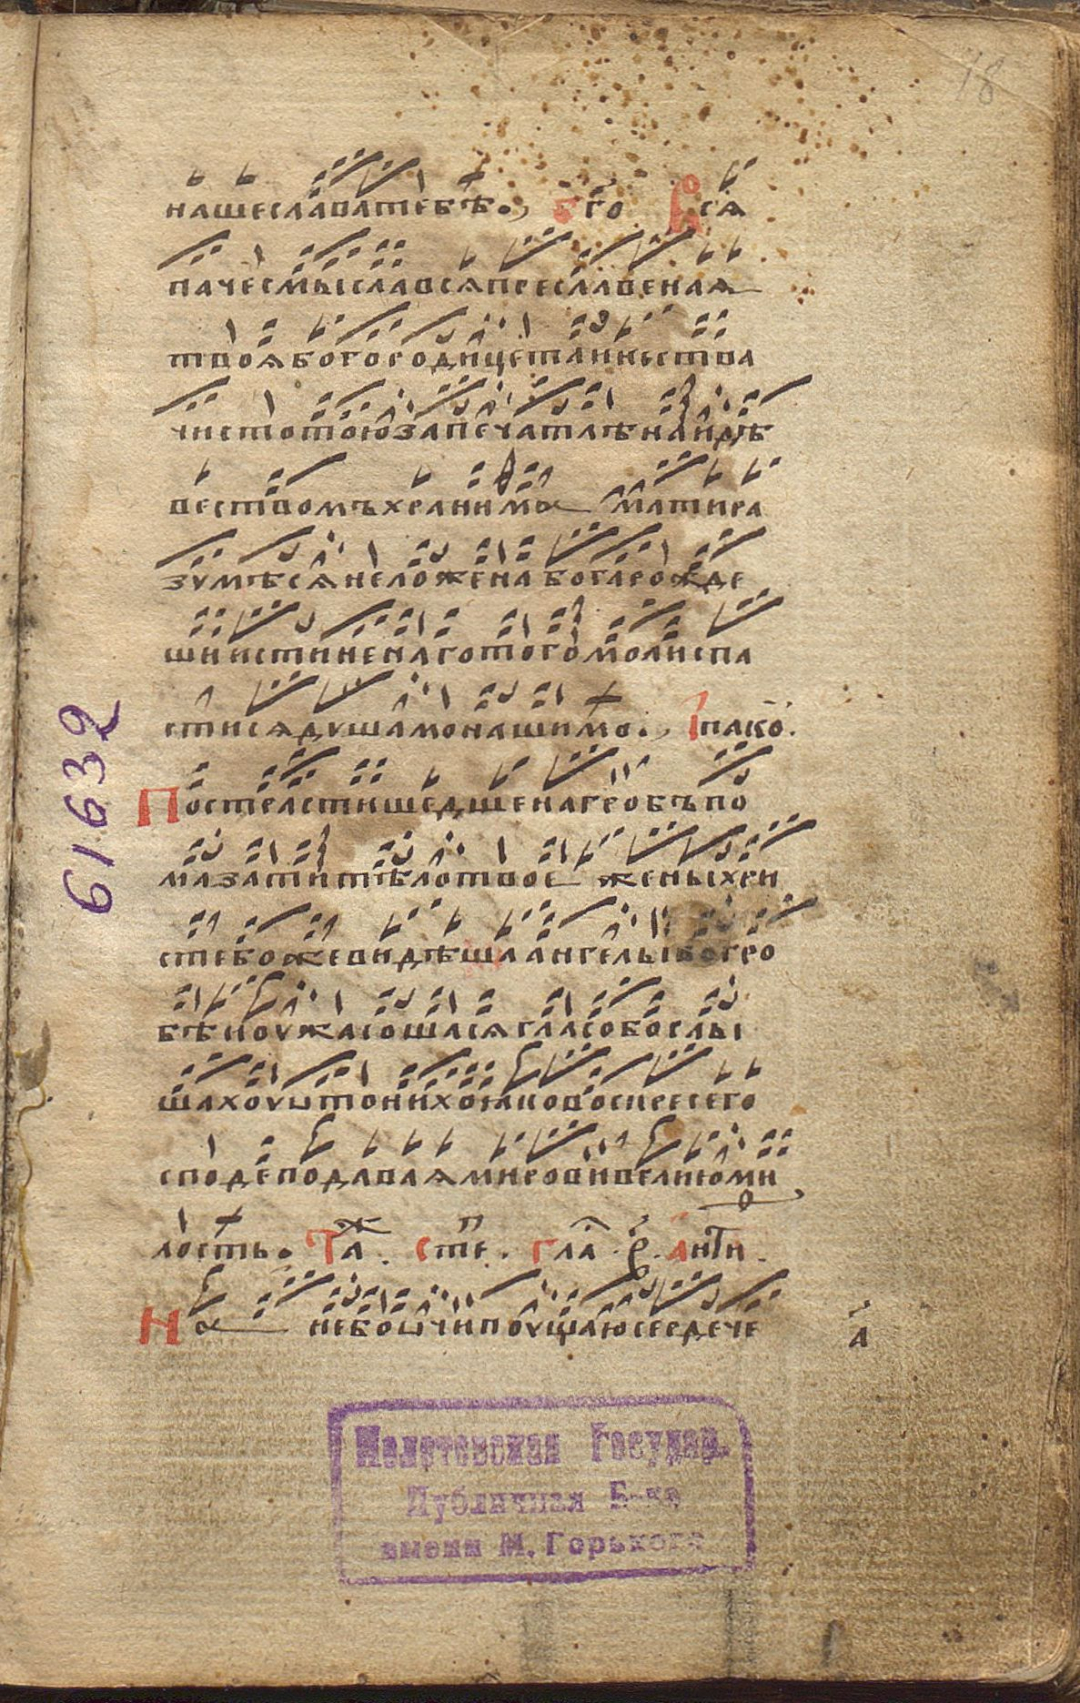 18
нашеславатебѣ., бго Вся
пачесмыславсѧпреславеная
твоѧбогородицетаинества
чистотоюзапечатлѣнаидѣ
вествомъхранима матира
зумѣсѧнеложенабогарожде
шиистиненаготогомолиспа
стисѧдушамонашимо., Iпако.
Пострастишедшенагробъпо
мазатитѣлотвое женыхри
стебожевидѣшаангелывогро
бѣиоужасошасѧгласобослы
шахоуѡтонихоѧковоскресего
сподеподаваѧмировивелиюми
лость. Та . сте . гла . антi .
На небоѡчипоущаюсердече
а
61632
Молотовская Государ.
Публичная Б-ка
имени М. Горького